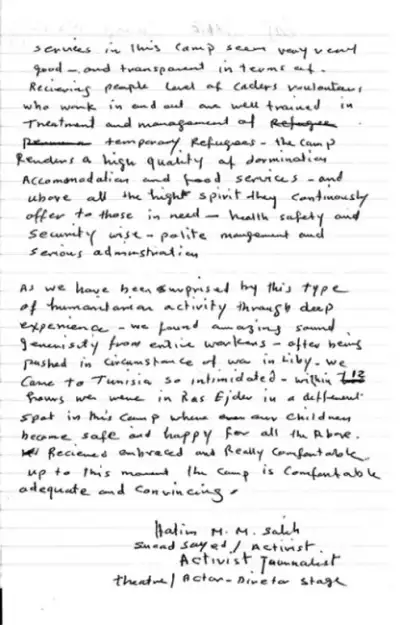 services in this camp seem very very
good - and transparent in terms of.
Recieving people level of caders voulontours
who work in and out are well trained in
Treatment and management of Refugee
temporary Refugees - the camp
Renders a high quality of dormination
Accomonodation and food services - and
above all the hight spirit they continously
offer to those in need - health safety and
security wise - polite mangement and
serious adminstration
As we have been surprised by this type
of humanitarian activity through deep
experience - we found amazing sound
generisity from entire workers - after being
pushed in circumstance of war in Liby - we
came to Tunisia so intimidated - within 12
hours we were in Ras Ejder in a different
spot in this camp where even our children
become safe and happy for all the Above.
Recieved enbraced and Really comfontable
up to this moment the camp is comfontable
adequate and convincing.
Hatim M. M. Saleh
Suead Sayed / Activist.
Activist Journalist
theatre / Actor - Diretor stage